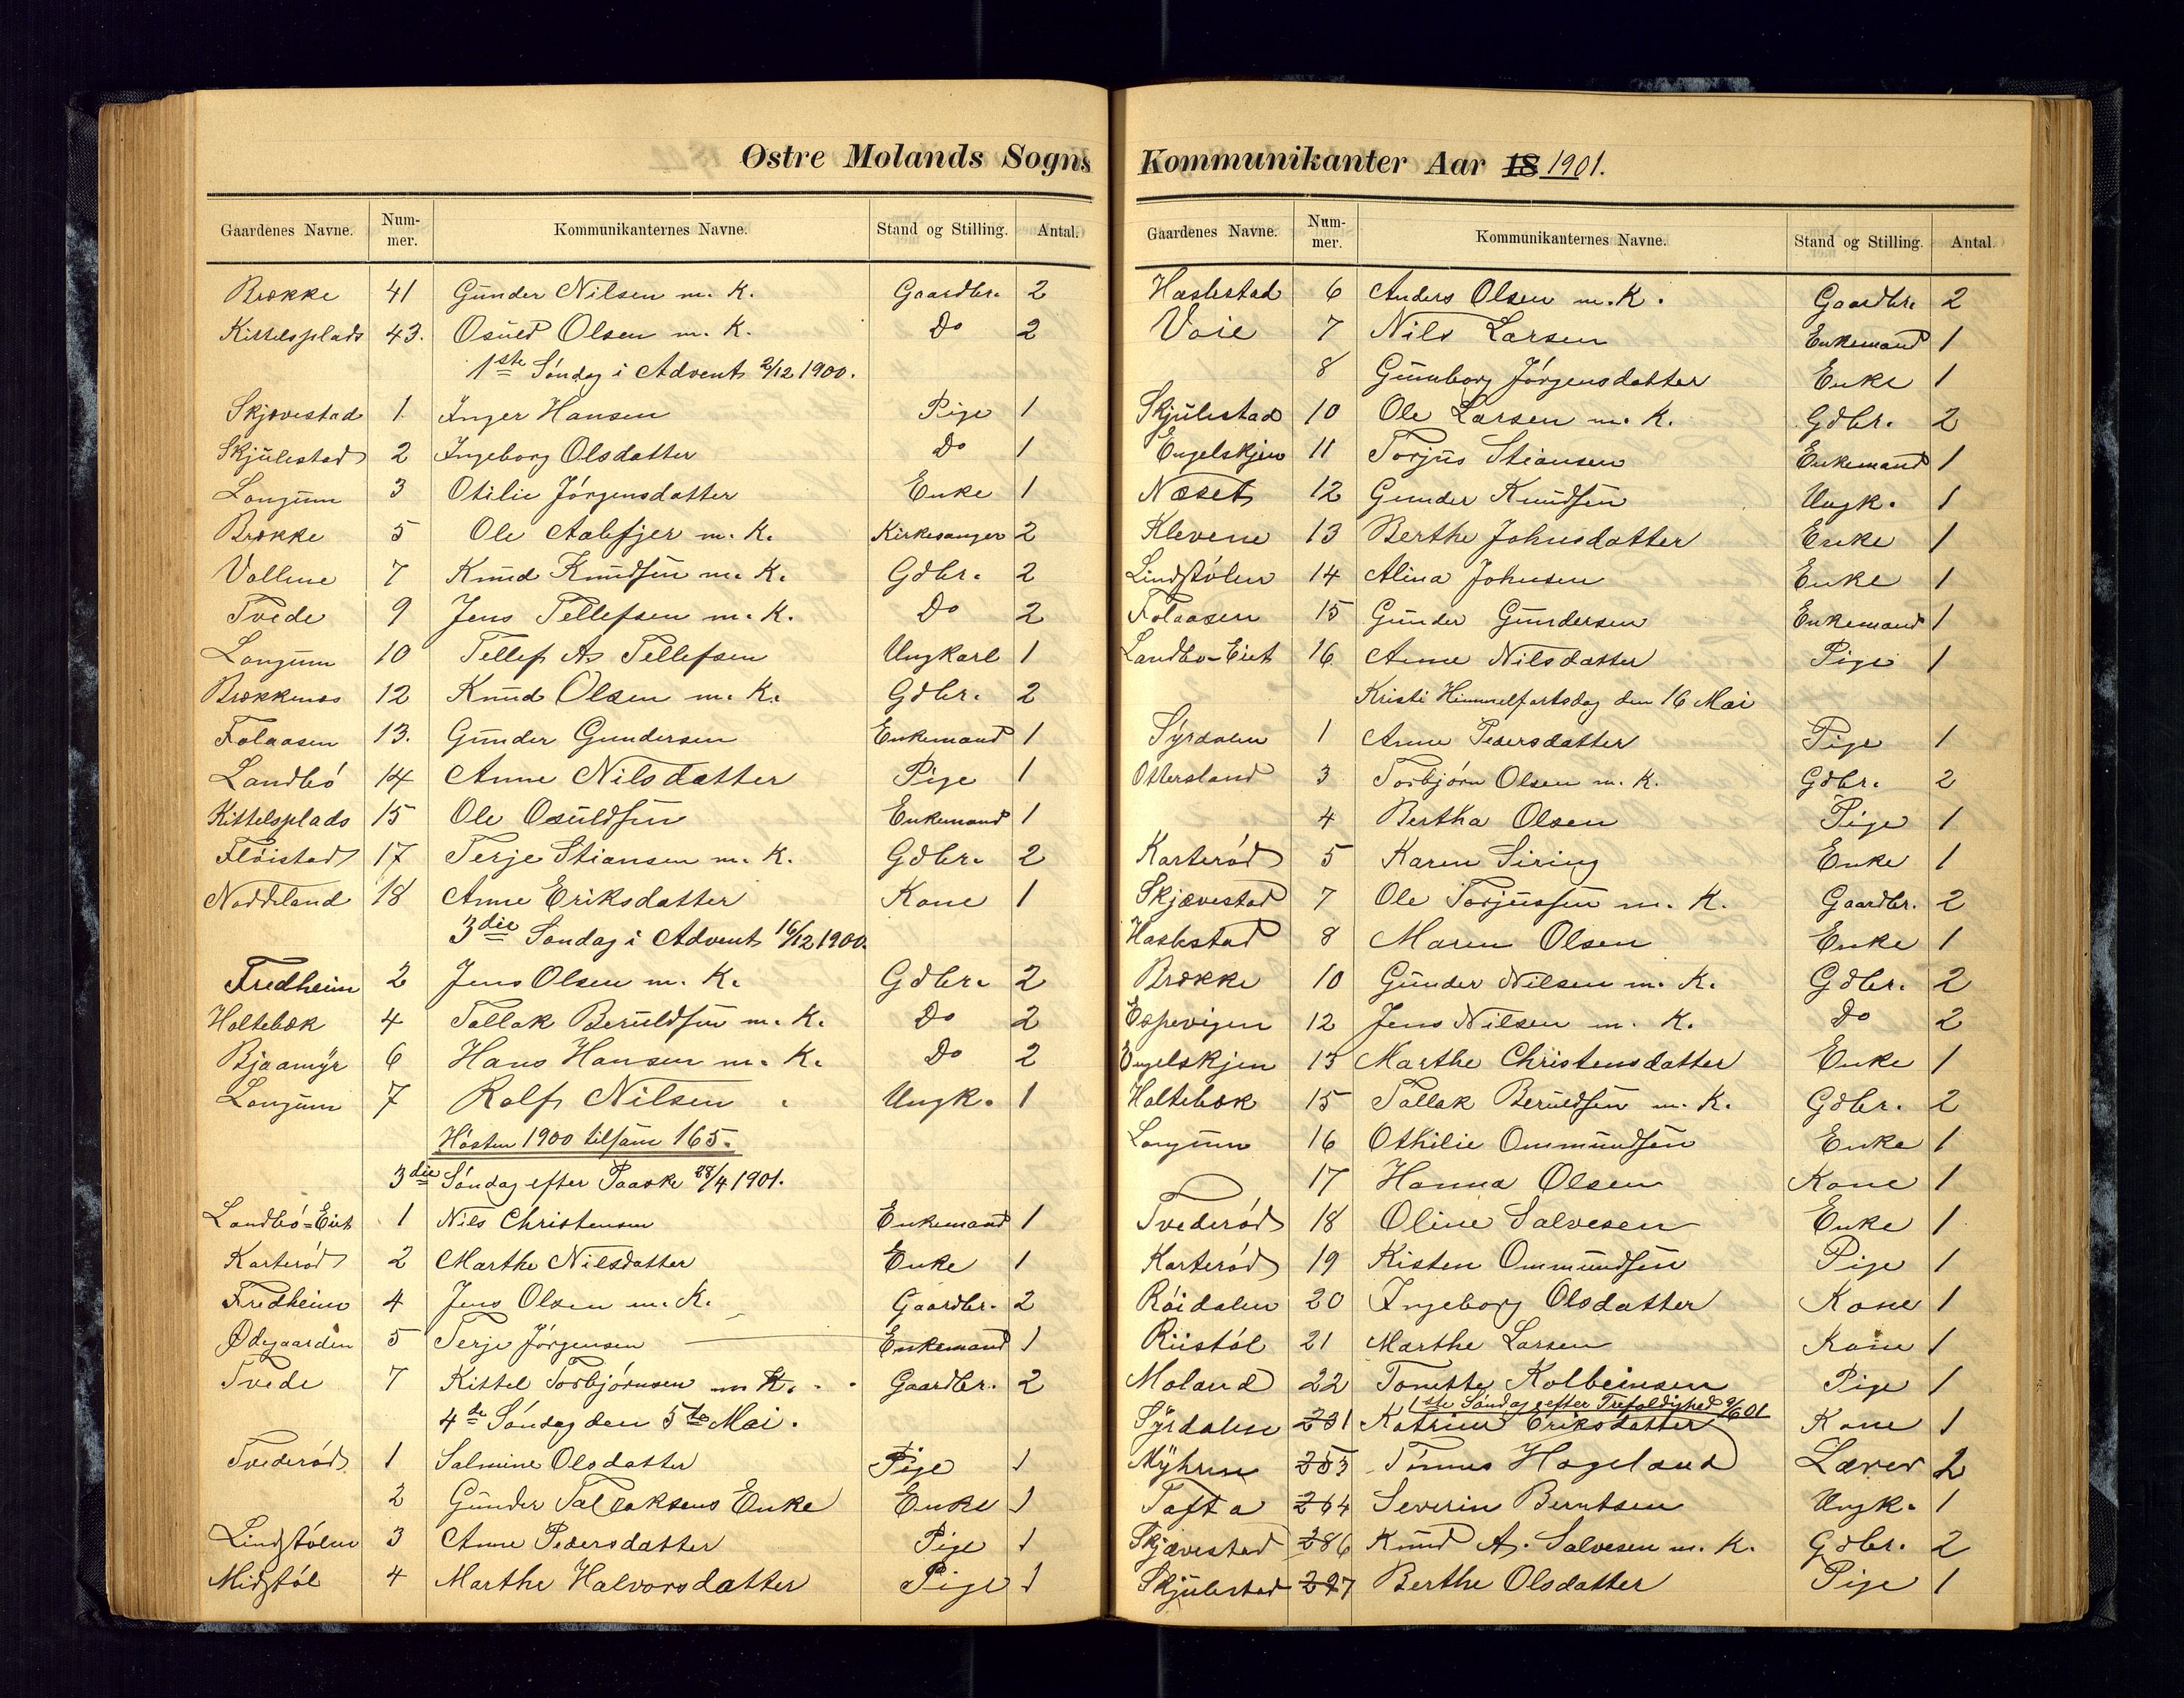 Østre Molands Sogns
Gaardenes Navne. Num-mer. Kommunikanternes Navne. Stand og Stilling. Antal.
Brække 41 Gunder Nilsen m. K. Gaardbr. 2
Kittelsplads 43. Osuld Olsen m. K. Do 2
1ste Søndag i Advent 2/12 1900.
Skjævestad 1 Inger Hansen Pige 1
Skjulestad 2 Ingeborg Olsdatter Do 1
Longum 3 Otilie Jörgensdatter Enke 1
Brække 5 Ole Aalefjer m. K. Kirkesanger 2
Vollene 7 Knud Knudsen m. K. Gdbr. 2
Tvede 9 Jens Tellefsen m. K. Do 2
Longum 10 Tellef As Tellefsen Ungkarl 1
Brækkemos 12 Knud Olsen m. K. Gdbr. 2
Folaasen 13. Gunder Gundersen Enkemand 1
Landbö 14 Anne Nilsdatter Pige 1
Kittelsplads 15 Ole Osuldsen Enkemand 1
Flöistad 17 Terje Stiansen m. K. Gdbr. 2
Noddeland 18 Anne Eriksdatter Kone 1
3die Søndag i Advent 16/12 1900.
Fredheim 2 Jens Olsen m. K. Gdbr. 2
Holtebæk 4 Tallak Beruldsen m. K. Do 2
Bjaamyr 6 Hans Hansen m. K. Do 2
Longum 7 Rolf Nilsen Ungk. 1
Hösten 1900 tilsam 165.
3die Söndag efter Paaske 28/4 1901.
Landbö-Eiet 1 Nils Christensen Enkemand 1
Karteröd 2 Marthe Nilsdatter Enke 1
Fredheim 4 Jens Olsen m. K. Gaardbr. 2
Ødegaarden 5 Terje Jörgensen Enkemand 1
Tvede 7 Kittel Torbjörnsen m K. Gaardbr. 2
4de Söndag den 5te Mai.
Tvederöd 1 Salmine Olsdatter Pige 1
2 Gunder Tallaksens Enke Enke 1
Lindstölen 3 Anne Pedersdatter Pige 1
Midstöl 4 Marthe Halvorsdatter Pige 1
Kommunikanter Aar 18 1901.
Gaardenes Navne. Num-mer. Kommunikanternes Navne. Stand og Stilling. Antal.
Haslestad 6 Anders Olsen m. K. Gaardbr. 2
Voie 7 Nils Larsen Enkemand 1
8 Gunborg Jörgensdatter Enke 1
Skjulestad 10 Ole Larsen m. K. Gdbr. 2
Engelskjen 11 Torjus Stiansen Enkemand 1
Næset 12 Gunder Knudsen Ungk. 1
Klevene 13 Berthe Johnsdatter Enke 1
Lindstölen 14 Alina Johnsen Enke 1
Folaasen 15 Gunder Gundersen Enkemand 1
Landbo-Eiet 16 Anne Nilsdatter Pige 1
Kristi Himmelfartsdag den 16 Mai
Syrdalen 1 Anne Pedersdatter Pige 1
Ottersland 3 Torbjörn Olsen m. K. Gdbr. 2
4 Bertha Olsen Pige 1
Karteröd 5 Karen Siring Enke 1
Skjævestad 7 Ole Torjussen m. K. Gaardbr. 2
Haslestad 8 Maren Olsen Enke 1
Brække 10 Gunder Nilsen m. K. Gdbr. 2
Espevigen 12 Jens Nilsen m. K. Do 2
Engelskjen 13 Marthe Christensdatter Enke 1
Holtebæk 15 Tallak Beruldsen m. K. Gdbr. 2
Longum 16 Othilie Ommundsen Enke 1
17 Hanna Olsen Kone 1
Tvederöd 18 Oline Salvesen Enke 1
Karteröd 19 Kisten Ommundsen Pige 1
Röidalen 20 Ingeborg Olsdatter Kone 1
Riistöl 21 Marthe Larsen Kone 1
Moland 22 Tomette Kolbeinsen Pige 1
1ste Söndag efter Trefoldighed 9/6 01
Syrdalen 23 1 Katrine Eriksdatter Kone 1
Myhren 25 3 Tönnes Hageland Lærer 2
Tofta 26 4 Severin Berntsen Ungk. 1
Skjævestad 28 6 Knud A. Salvesen m. K. Gdbr. 2
Skjulestad 29 7 Berthe Olsdatter Pige 1